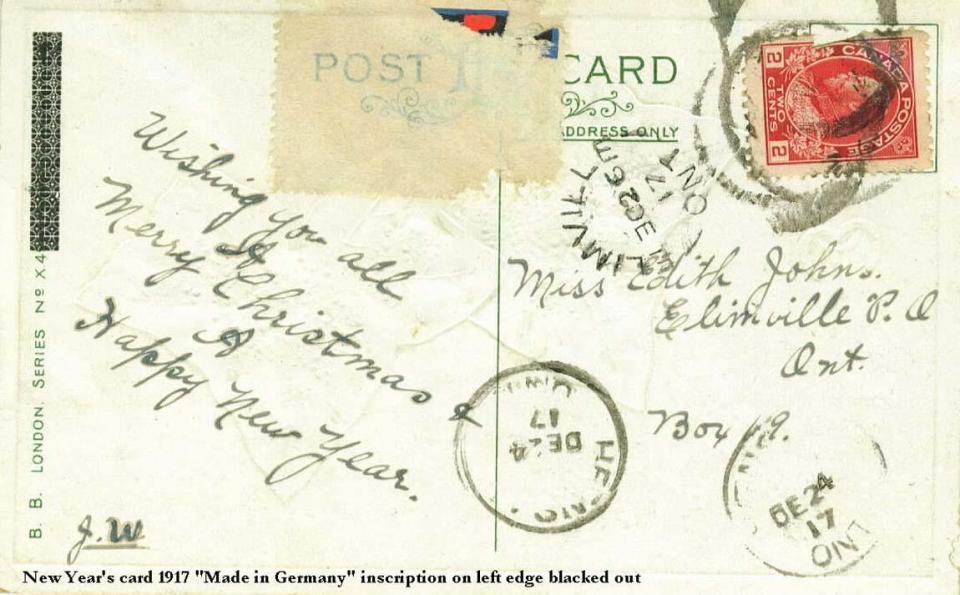 POST CARD
ADDRESS ONLY
CANADA POSTAGE
2 TWO CENTS 2
Wishing you all
A
Merry Christmas &
A
Happy New Year.
J.W
DE 25
17
ONT
Miss Edith Johns.
Elimville P.O
Ont.
Box 49.
DE 24
17
DE 24
17
ONT
B. B. LONDON. SERIES No X.4
New Year's card 1917 "Made in Germany" inscription on left edge blacked out